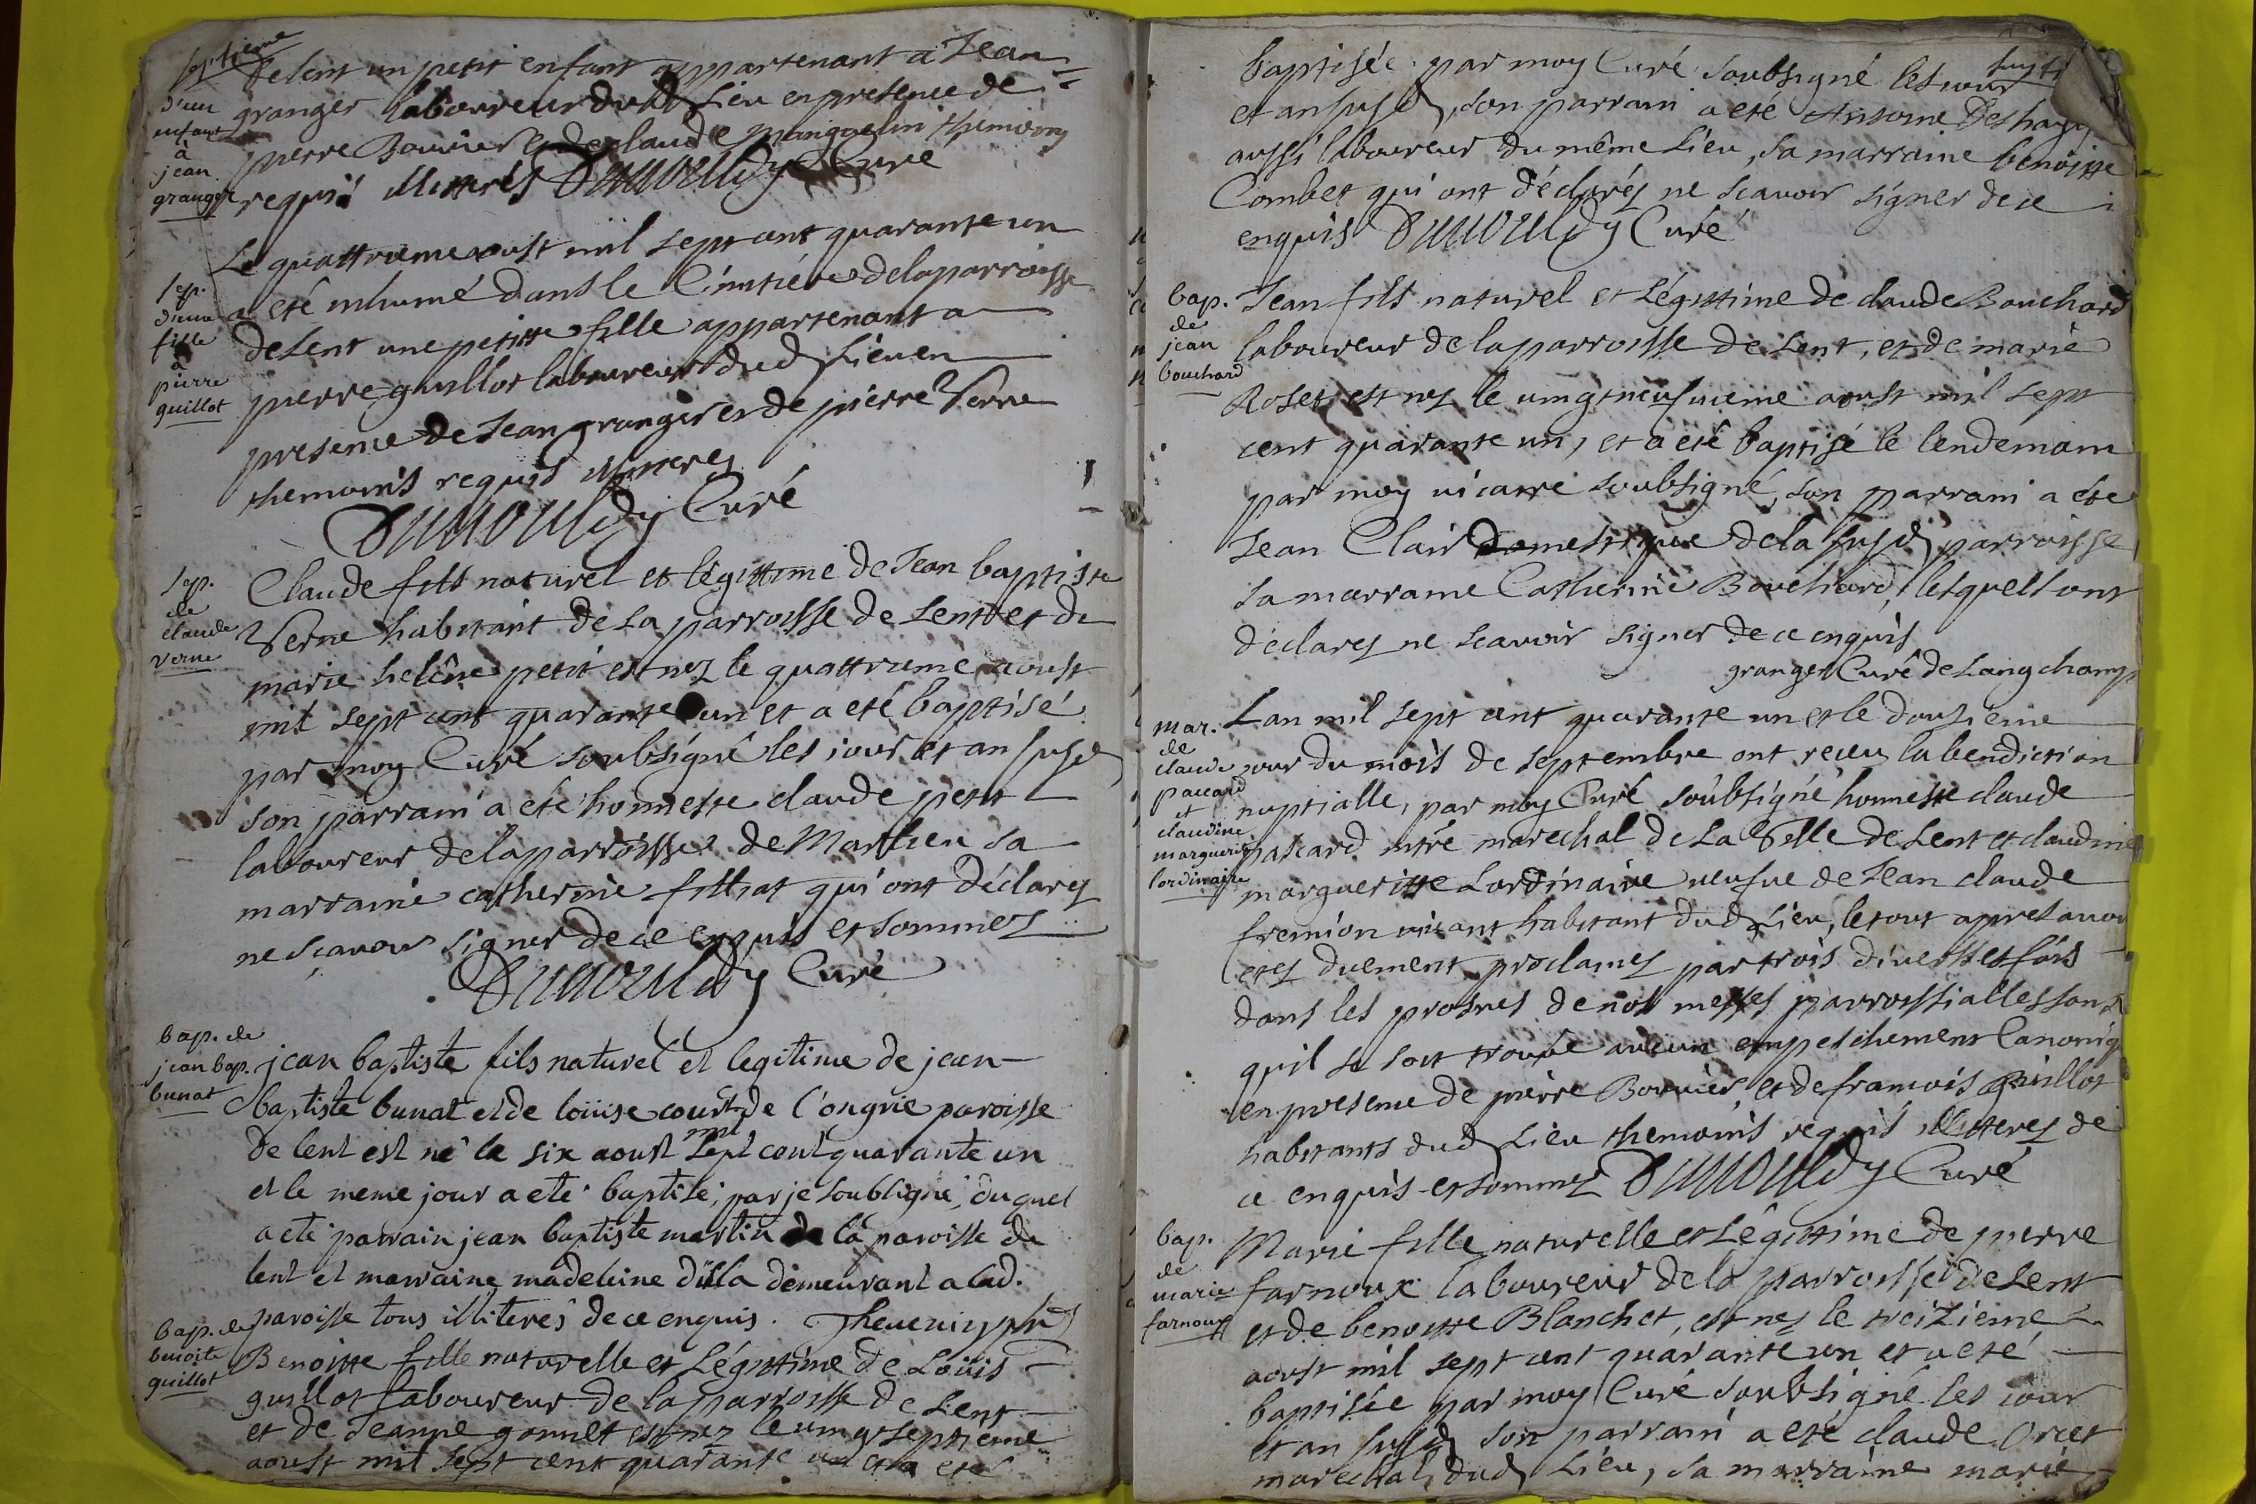 septieme
d'un
enfant
à
jean
granger
delent un petit enfant appartenant a Jean
granger laboureur dud Lieu en presence de
pierre Bouvier et de claude manguelin themoins
requis illitteres Dumouldy Curé
sep.
d'une
fille
a
pierre
guillot
Le quattrieme aoust mil sept cent quarante un
a eté inhumé dans le Cimetiére de la parroisse
de Lent une petitte fille appartenant a
pierre guillot laboureur dud Lieu en
presence de Jean granger et de pierre Verne
themoins requis illitteres
Dumouldy Curé
bap.
de
claude
verne
Claude fils naturel et légittime de Jean baptiste
Verne habitant de La parroisse de Lent et de
marie heléne petit est nez le quattrieme aoust
mil sept cent quarante un et a eté baptisé
par moy Curé soubsigné les jour et an susd
son parrain a eté honneste claude petit
laboureur de la parroisse de Marlieu sa
marraine catherine filliat qui ont déclarez
ne sçavoir signer de ce enquis et sommez
Dumouldy Curé
bap. de
jean bap.
bunat
jean baptiste fils naturel et legitime de jean
baptiste bunat et de loüise court de l'ongrie paroisse
de lent est né le six aoust mil sept cent quarante un
et le meme jour a eté baptisé par je soubsigné, duquel
a eté parrain jean baptiste martin de la paroisse de
lent et marraine madeleine dulla demeurant a lad.
paroisse tous illiterés de ce enquis. Thevenin ptre
bap. de
benoite
guillot
Benoitte fille naturelle et Légittime de Loüis
guillot laboureur de la parroisse de Lent
et de Jeanne gonnet est nez le vingt septiéme
aoust mil sept cent quarante un et a eté
baptisée par moy Curé soubsigné les jour
et an susd, son parrain a eté Antoine Deshayes
aussi laboureur du même Lieu, sa marraine benoitte
Combet qui ont déclarez ne scavoir signer de ce
enquis Dumouldy Curé
bap.
de
jean
bouchard
Jean fils naturel et Légittime de claude Bouchard
laboureur de la parroisse de Lent, et de marie
Roset est nez le vingt neufvieme aoust mil sept
cent quarante un, et a eté baptisé le lendemain
par moy vicaire soubsigné, son parrain a eté
Jean Clair domestique de la susd parroisse
sa marraine Catherine Bouchard, lesquels ont
declarez ne scavoir signer de ce enquis
granger Curé de Longchamp
mar.
de
claude
pascard
et
claudine
marguerite
lordinaire
Lan mil sept cent quarante un et le douzieme
jour du mois de septembre ont receu la benediction
nuptialle, par moy Curé soubsigné honneste claude
pascard mtre marechal de La Ville de Lent et claudine
margueritte Lordinaire veufve de Jean claude
fremion vivant habitant dud Lieu, le tout apres avoir
etez duement proclamez par trois diverses fois
dans les prosnes de nos messes parroissialles sans
qu'il se soit trouvé aucun empeschement Canoniq
en presence de pierre Bouvier et de francois Guillot
habitants dud Lieu themoins requis illitterez de
ce enquis et sommez Dumouldy Curé
bap.
de
marie
farnoux
Marie fille naturelle et Légittime de pierre
farnoux laboureur de la parroisse de Lent
et de benoitte Blanchet, est nez le treizieme
aoust mil sept cent quarante un et a eté
baptisée par moy Curé soubsigné les jour
et an susd son parrain a eté claude Orcet
marechal dud Lieu, sa marraine marie